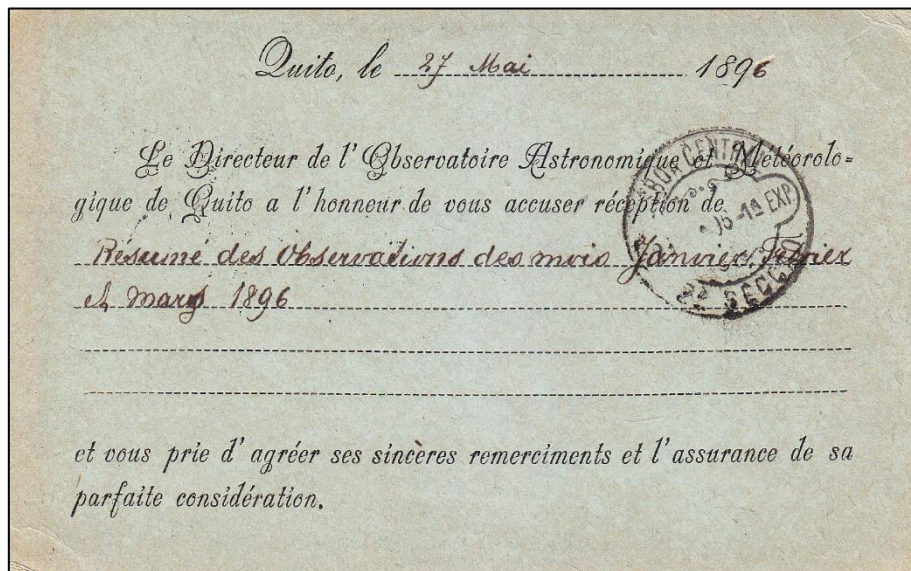 Quito, le 27 Mai 1896
Le Directeur de l'Observatoire Astronomique et Météorolo=
gique de Quito a l'honneur de vous accuser réception de
Résumé des Observations des mois Janvier, Fevrier
et mars 1896
et vous prie d'agréer ses sincères remerciments et l'assurance de sa
parfaite considération.
CENTRAL
1ª EXP
2ª SECCÇÃO